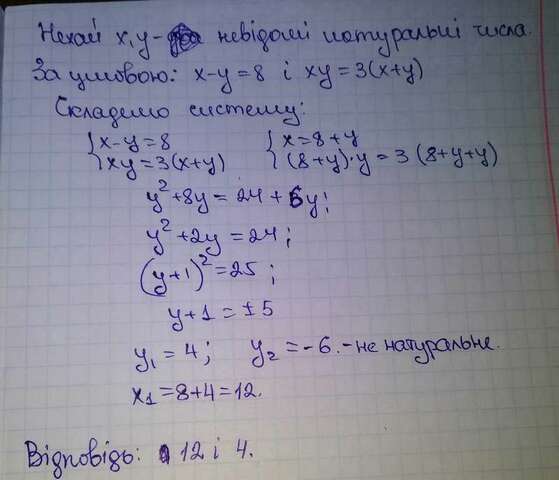 Нехай x, y - невідомі натуральні числа.
За умовою: x-y=8 і xy=3(x+y)
Складемо систему:
{x-y=8 {x=8+y
{xy=3(x+y) {(8+y)·y=3(8+y+y)
y²+8y=24+6y;
y²+2y=24;
(y+1)²=25;
y+1=±5
y₁=4; y₂=-6.-не натуральне.
x₁=8+4=12.
Відповідь: 12 і 4.